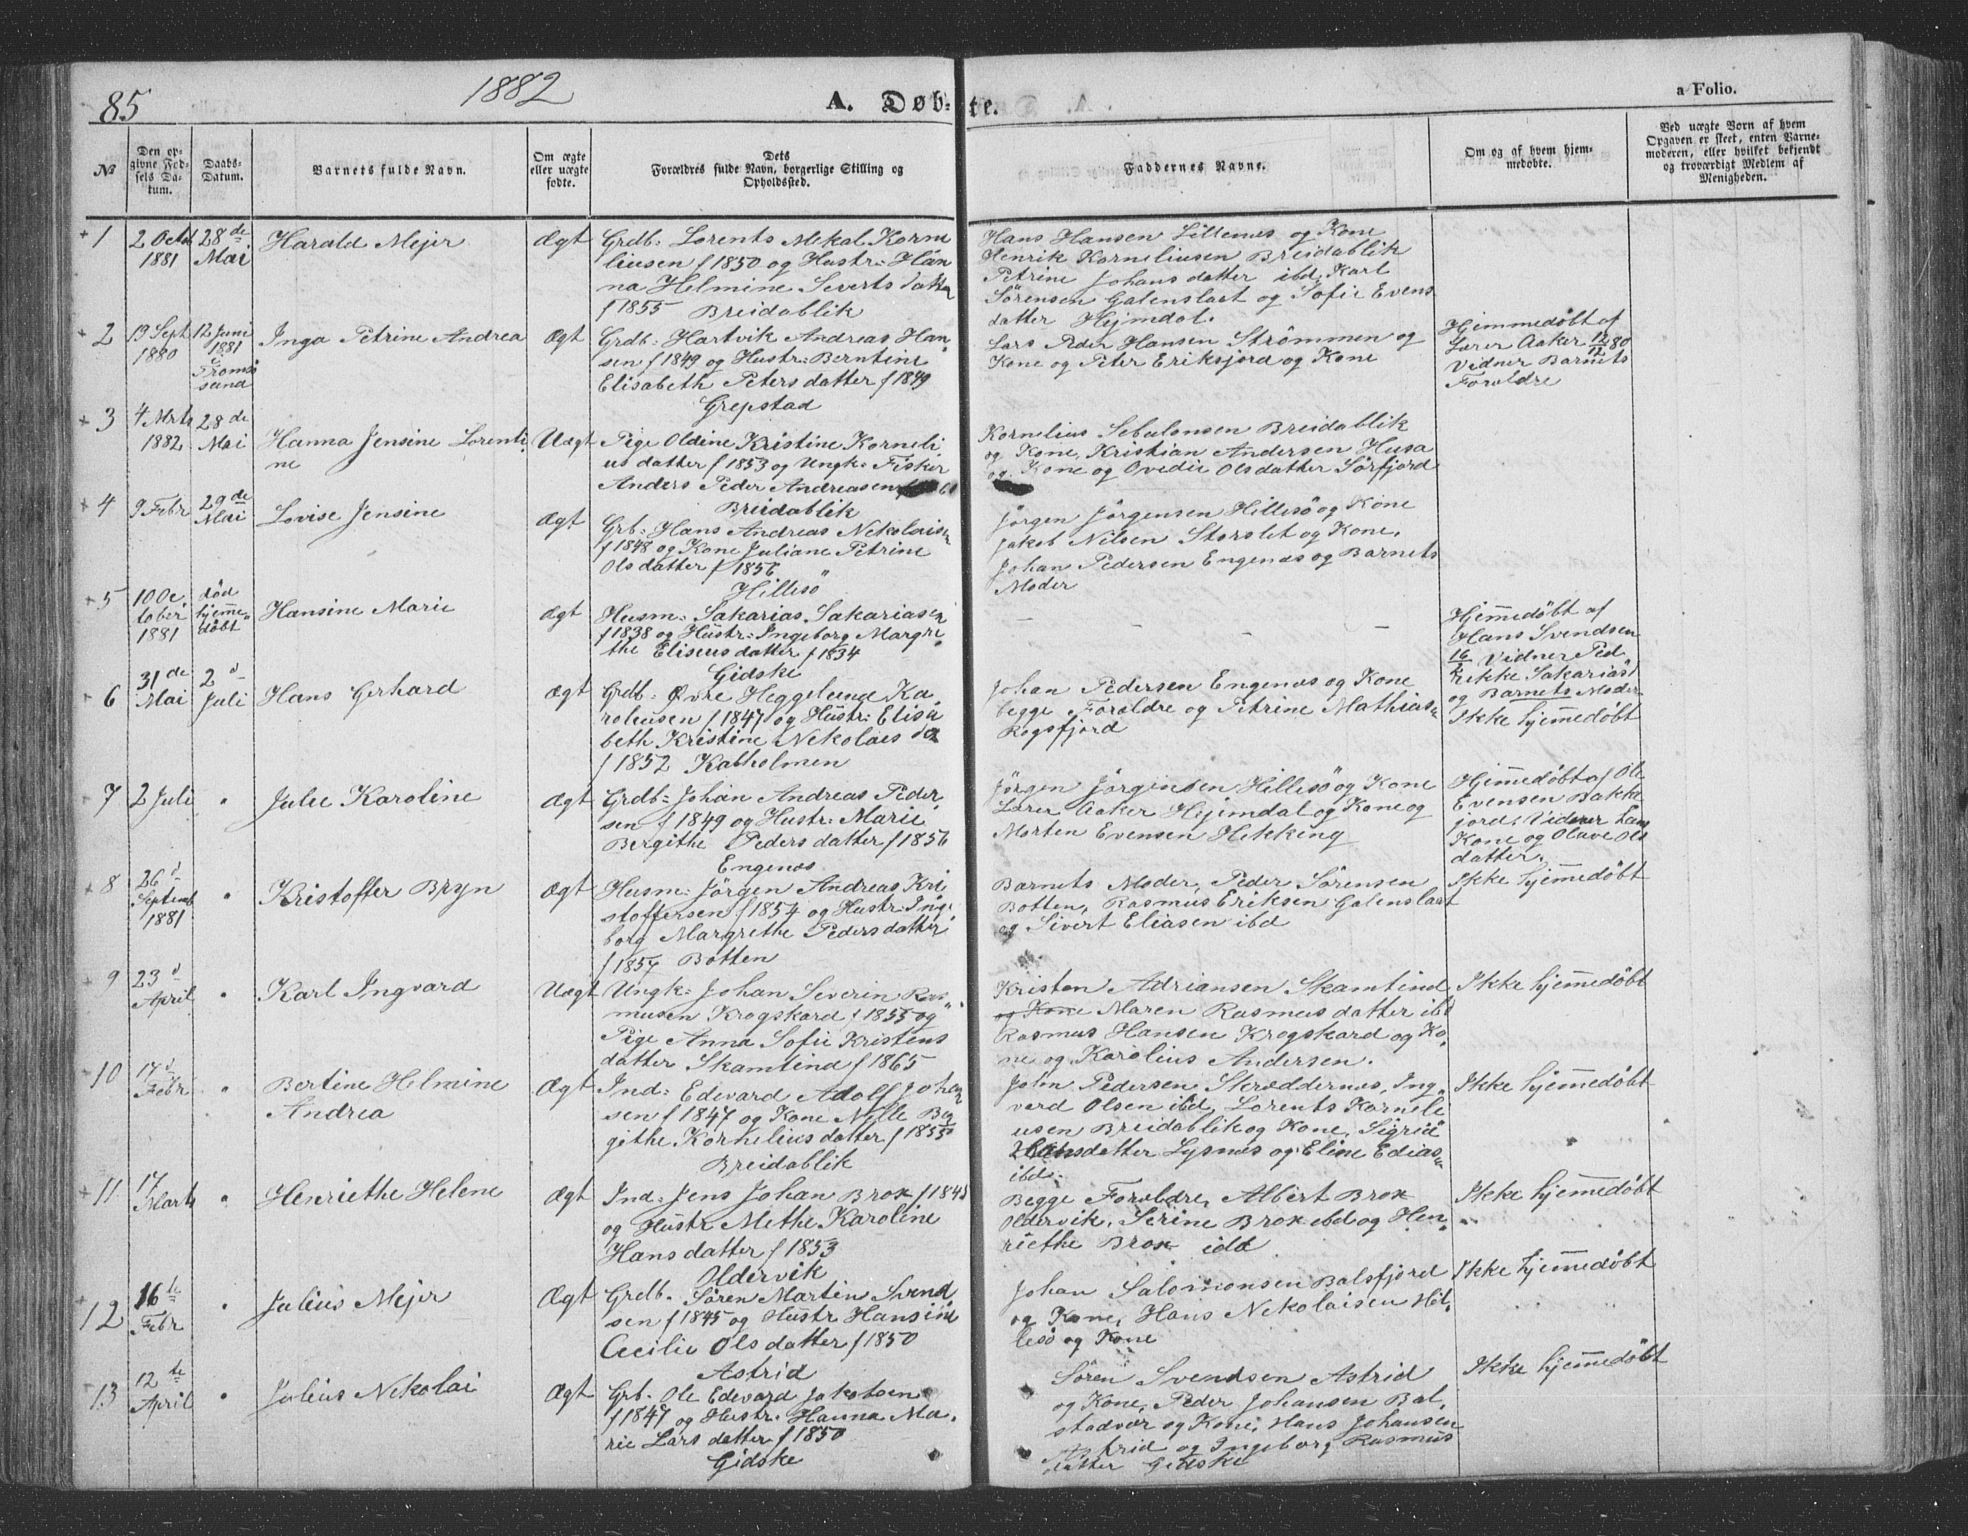 85
1882
A. Døb-
te.
a Folio.
№
Den op-
givne Fød-
sels Da-
tum.
Daabs-
Datum.
Barnets fulde Navn.
Om ægte
eller uægte
fødte.
Dets
Forældres fulde Navn, borgerlige Stilling og
Opholdssted.
Faddernes Navne.
Om og af hvem hjem-
medøbte.
Ved uægte Born af hvem
Opgaven er skeet, enten Barne-
moderen, eller hvilket bekjendt
og troværdigt Medlem af
Menigheden.
1
2 Octbr
1881
28de
Mai
Harald Mejer
Ægt
Grdb: Lorents Mekal Korne
liusen f 1850 og Hustr: Han
na Helmine Severts datter
f 1855 Breidablik
Hans Hansen Lillenes og Kone
Henrik Korneliusen Breidablik
Petrine Johansdatter ibd, Karl
Sørensen Galenslaat og Sofie Evens
datter Hejmdal.
2
13 Sept
1880
12 Juni
1881
i Tromsø
sund
Inga Petrine Andrea
Ægt
Grdb: Hartvik Andreas Han
sen f 1849 og Hustr: Berntine
Elisabeth Peters datter f 1849
Grepstad
Lars Peder Hansen Strömmen og
Kone og Peter Eriksjord og Kone
Hjemmedøbt af
Lærer Aaker 12/12 80
Vidner Barnets
Foreldre
3
4 Mrts
1882
28de
Mai
Hanna Jensine Lorenti
ne
Uægt
Pige Oldine Kristine Korneli
us datter f 1853 og Ungk: Fisker
Anders Peder Andreasen
Breidablik
Kornelius Sebulonsen Breidablik
og Kone, Kristian Andersen Husa
og Kone og Ovedie Olsdatter Sørfjord
4
9 Febr
29de
Mai
Lovise Jensine
Ægt
Grb: Hans Andreas Nekolaisen
f 1848 og Kone Juliane Petrine
Ols datter f 1856
Hillesö
Jörgen Jörgensen Hillesö og Kone
Jakob Nilsen Storslet og Kone,
Johan Pedersen Engenæs og Barnets
Moder
5
10 Oc
tober
1881
død
hjemme
døbt
Hansine Marie
Ægt
Husm: Sakarias Sakariasen
f 1838 og Hustr: Ingeborg Margre
the Eliseus datter f 1834
Gidske
Hjemmedöbt af
Hans Svendsen
Vidner Ped
rikke Sakarias
og Barnets Moder
6
31de
Mai
2d
Juli
Hans Gerhard
Ægt
Grdb: Øvre Heggelund Ka
roliusen f 1847 og Hustr: Elisa
beth Kristine Nekolais da
f 1852 Katholmen
Johan Pedersen Engenæs og Kone
begge Foreldre og Petrine Mathias
Rogsfjord
Ikke hjemmedöbt
7
2 Juli
"
Julie Karoline
Ægt
Grdb: Johan Andreas Peder
sen f 1849 og Hustr: Marie
Bergithe Peders datter f 1856
Engenæs
Jörgen Jörgensen Hillesö og Kone
Lærer Aaker Hejmdal og Kone og
Morten Evensen Hekking
Hjemmedöbt af Ole
Evensen Bakke
jord, Vidner hans
Kone og Olave Ols
datter,
8
26d
Septemb
1881
"
Kristoffer Bryn
Ægt
Husm: Jörgen Andreas Kri
stoffersen f 1854 og Hustr: Inge
borg Margrethe Peders datter
f 1857 Botten
Barnets Moder, Peder Sörensen
Botten, Rasmus Eriksen Galenslaat
og Sivert Eliasen ibd
Ikke hjemmedöbt
9
23d
April
"
Karl Ingvard
Uægt
Ungk: Johan Severin Ras
musen Krogskard f 1855 og
Pige Anna Sofie Kristens
datter Skamtind f 1865
Kristen Adriansen Skamtind
og Kone Maren Rasmus datter ibd
Rasmus Hansen Krogskard og Ko
ne og Karolius Andersen.
Ikke hjemmedöbt
10
17d
Febr
"
Bertine Helmine
Andrea
Ægt
Ind: Edevard Adolf Johan
sen f 1847 og Kone Nille Ber
githe Kornelius datter f 1855
Breidablik
John Pedersen Skræddernes, Ing
vard Olsen ibd, Lorents Korneli
usen Breidablik og Kone, Sigrid
Hansdatter Lysnes og Eline Edias
ibd.
Ikke hjemmedöbt
11
17
Marts
"
Henriethe Helene
Ægt
Ind: Jens Johan Brox f 1845
og Hustr Methe Karoline
Hans datter f 1853
Oldervik
Begge Foreldre, Albert Brox
Oldervik, Serine Brox ibd og Hen
riethe Brox ibd
Ikke hjemmedöbt
12
16de
Febr
"
Julius Mejer
Ægt
Grdb. Søren Martin Svend
sen f 1845 og Hustr Hansine
Cecilie Ols datter f 1850
Astrid
Johan Salomonsen Balsfjord
og Kone, Hans Nekolaisen Hil
lesö og Kone
Ikke hjemmedöbt
13
12te
April
"
Julius Nekolai
Ægt
Grb. Ole Edevard Jakobsen
f 1847 og Hustr: Hanna Ma
rie Lars datter f 1850
Gidske
Sören Svendsen Astrid
og Kone, Peder Johansen Bal
stadvær og Kone, Hans Johansen
Astrid og Ingeborg Rasmus
datter Gidske
Ikke hjemmedöbt